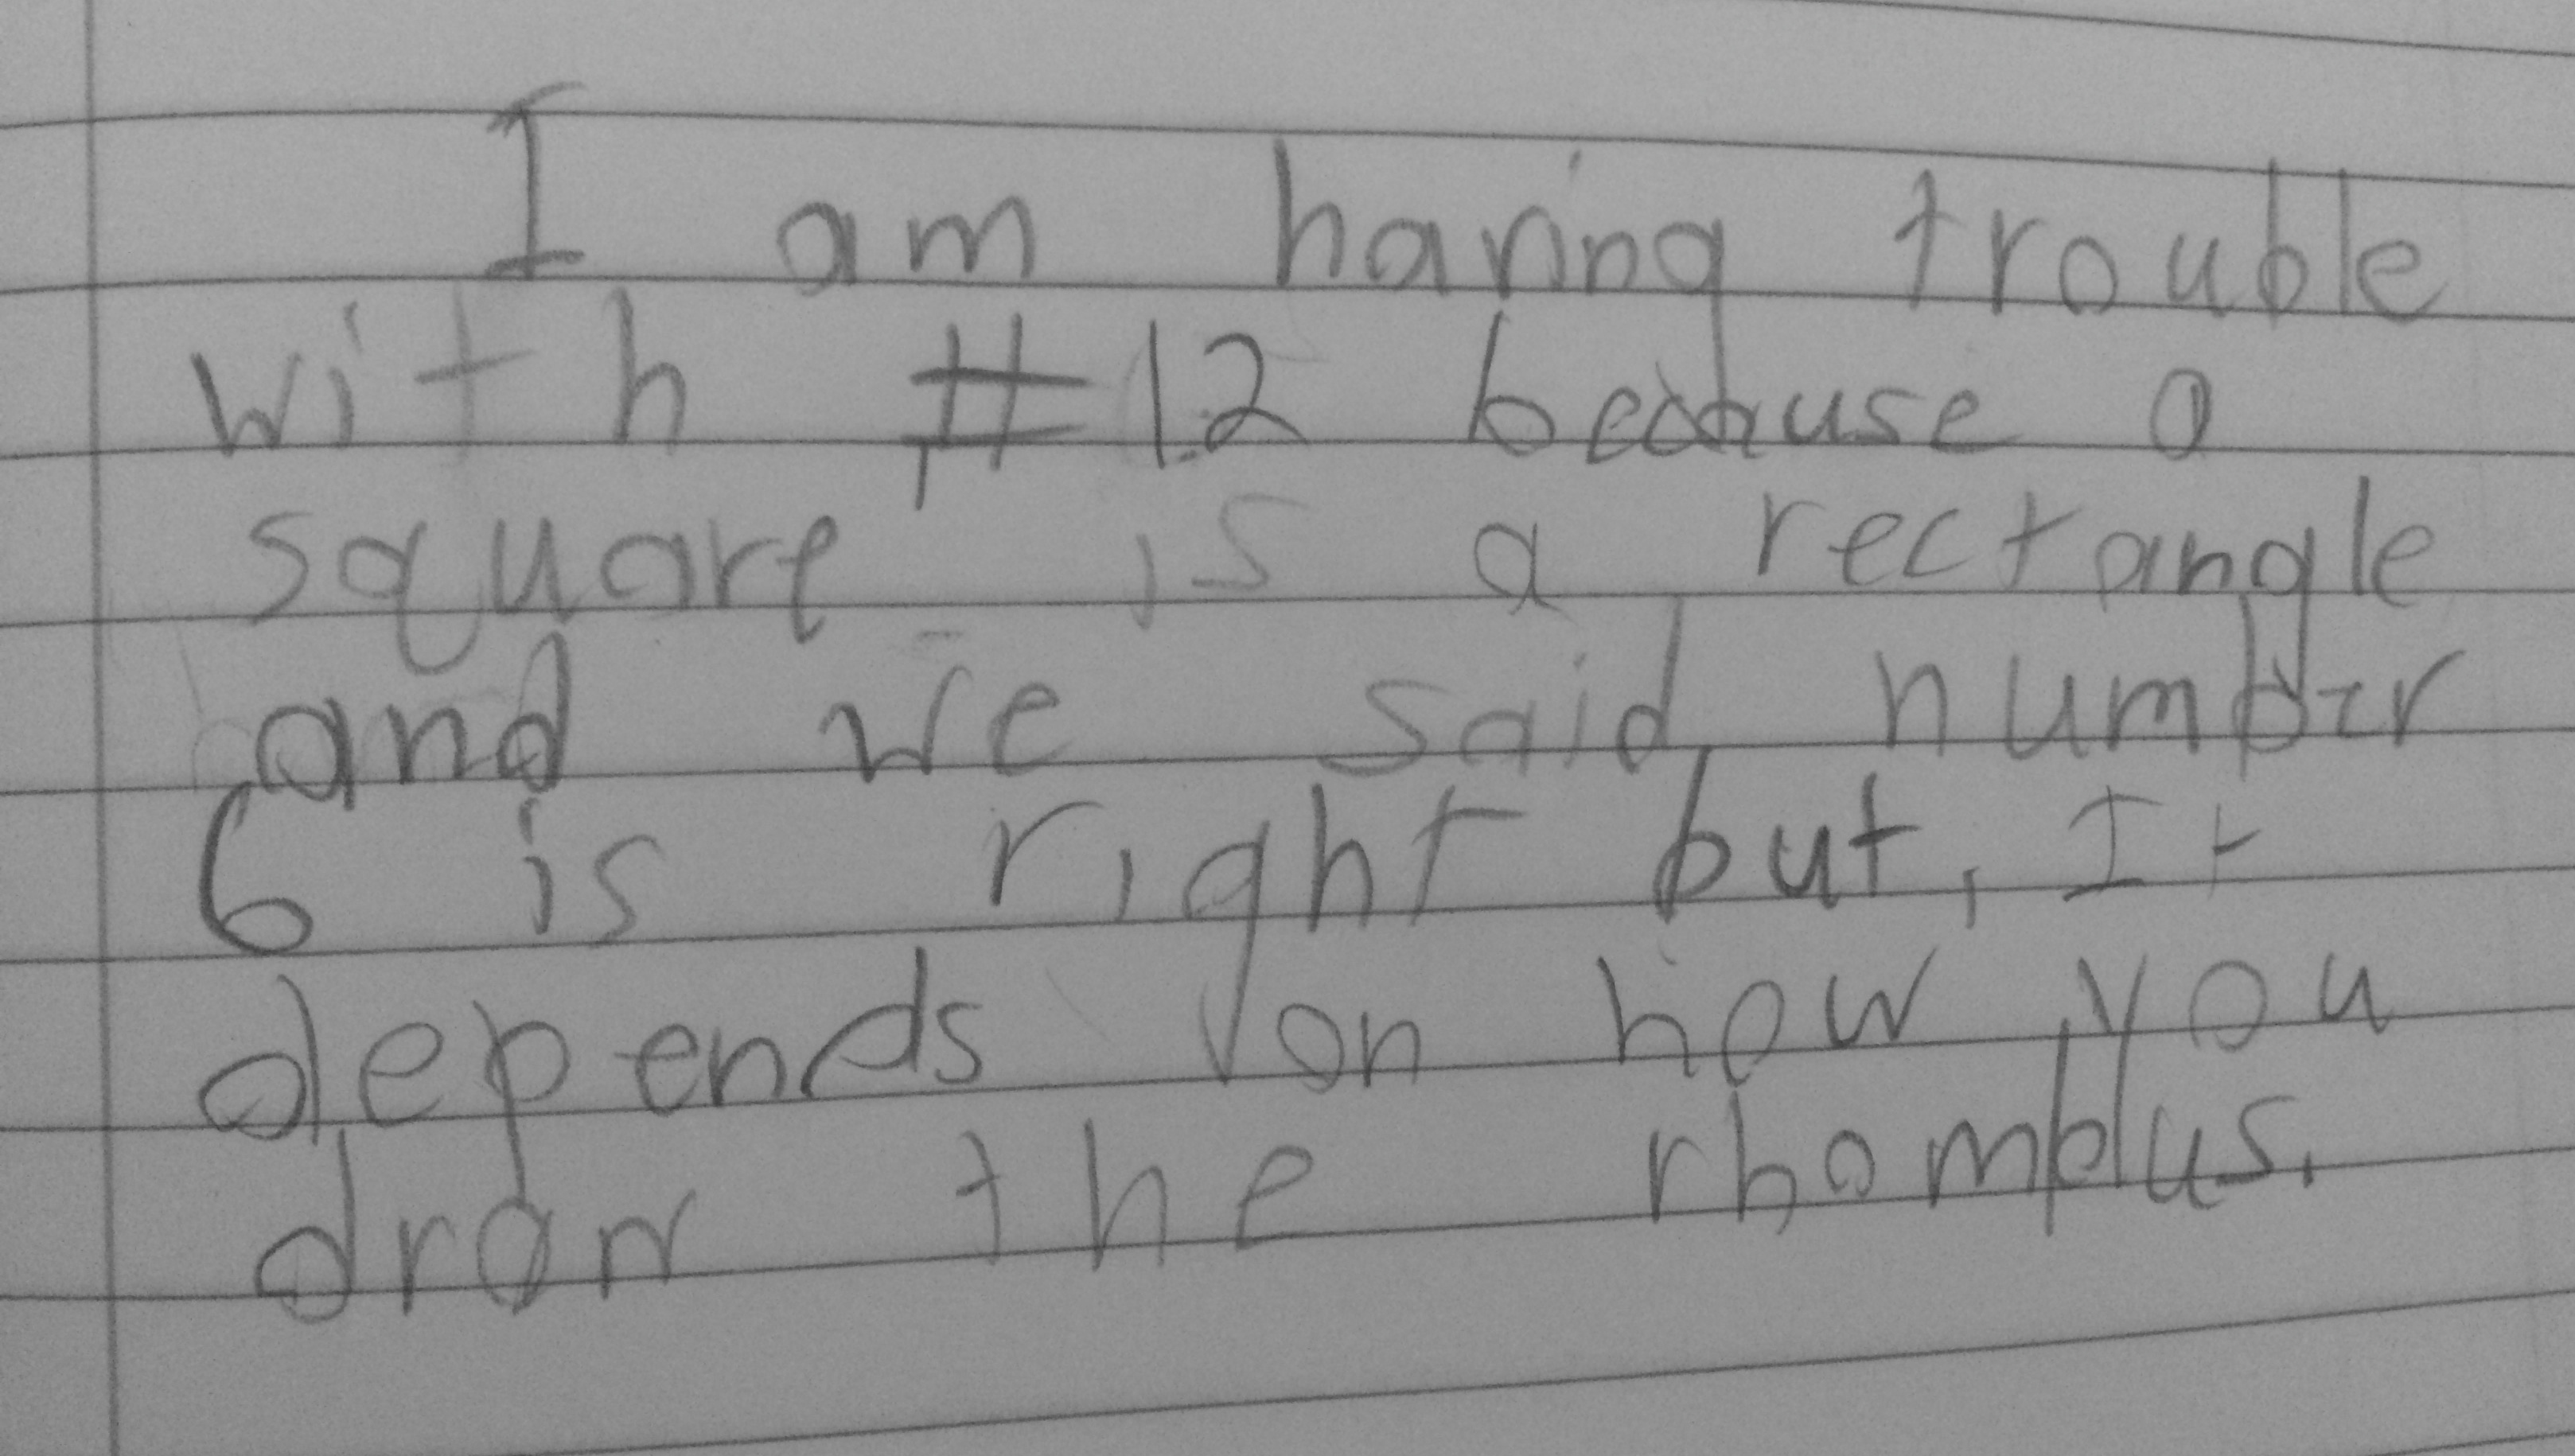 I am having trouble
with #12 because a
square is a rectangle
and we said number
6 is right but, It
depends on how you
draw the rhomplus.